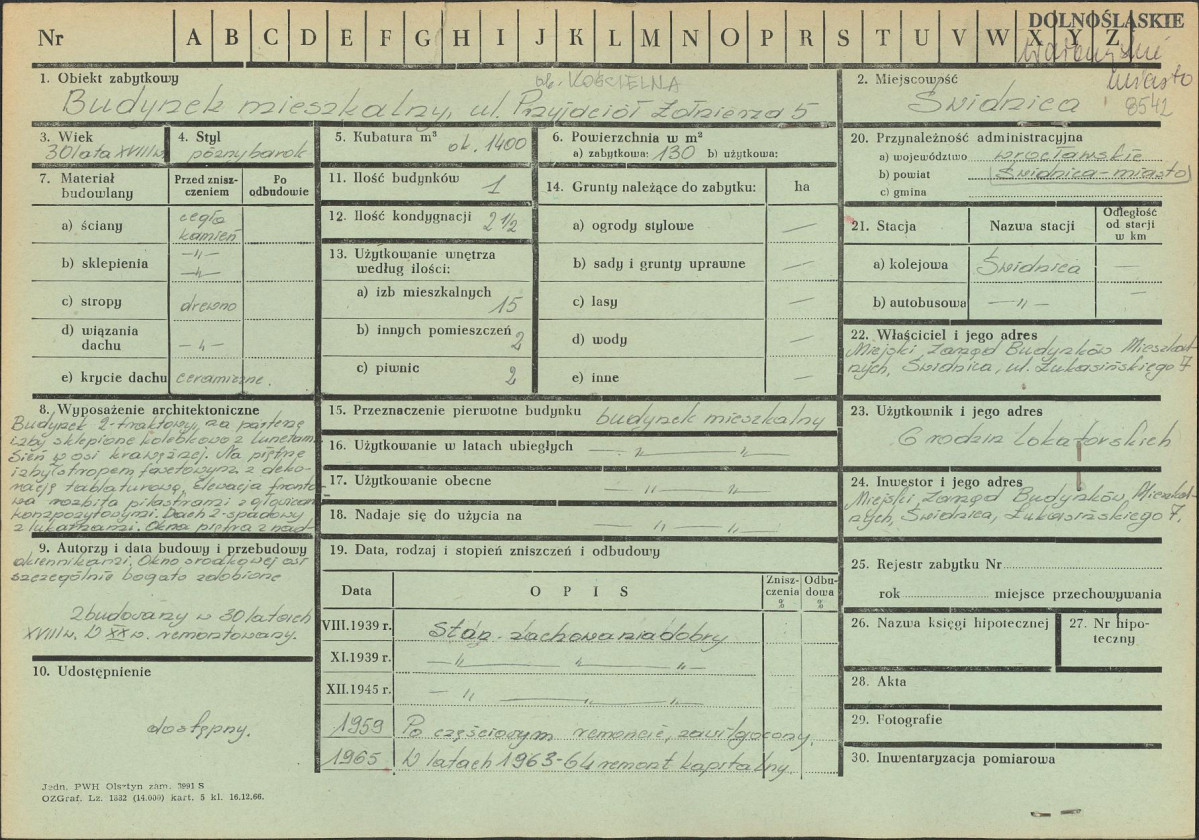 DOLNOŚLĄSKIE
Nr A B C D E F G H I J K L M N O P R S T U V W X Y Z
miasto
8542
1. Obiekt zabytkowy
ob. KOŚCIELNA
Budynek mieszkalny, ul. Przyjaciół Żołnierza 5
2. Miejscowość
Świdnica
3. Wiek
30 lata XVIII w.
4. Styl
późny barok
5. Kubatura m³ ok. 1400
6. Powierzchnia w m²
a) zabytkowa: 130 b) użytkowa:
7. Materiał budowlany
Przed zniszczeniem
Po odbudowie
a) ściany
cegła
kamień
b) sklepienia
—„—
—„—
c) stropy
drewno
d) wiązania dachu
—„—
e) krycie dachu ceramiczne.
8. Wyposażenie architektoniczne
Budynek 2-traktowy, na parterze
izby sklepione kolebkowo z lunetami
Sień w osi krawężnej. Na piętrze
izby stropem fasetowym z deko-
racją tablaturową. Elewacja fronto-
wa rozbita pilastrami z głowicami
kompozytowymi. Dach 2-spadowy
z lukarnami. Okna piętra z nad-
9. Autorzy i data budowy i przebudowy
okiennikami. Okno środkowej osi
szczególnie bogato zdobione
Zbudowany w 30 latach
XVIII w. W XX w. remontowany.
10. Udostępnienie
dostępny.
11. Ilość budynków 1
12. Ilość kondygnacji 2 1/2
13. Użytkowanie wnętrza
według ilości:
a) izb mieszkalnych 15
b) innych pomieszczeń 2
c) piwnic 2
14. Grunty należące do zabytku: ha
a) ogrody stylowe —
b) sady i grunty uprawne —
c) lasy —
d) wody —
e) inne —
15. Przeznaczenie pierwotne budynku budynek mieszkalny
16. Użytkowanie w latach ubiegłych —„— —„—
17. Użytkowanie obecne —„— —„—
18. Nadaje się do użycia na —„— —„—
19. Data, rodzaj i stopień zniszczeń i odbudowy
Data
OPIS
Zniszczenia %
Odbudowa %
VIII.1939 r. Stan zachowania dobry
XI.1939 r. —„— „ —„—
XII.1945 r. —„— „ —„—
1959 Po częściowym remoncie, zawilgocony.
1965 W latach 1963-64 remont kapitalny.
20. Przynależność administracyjna
a) województwo wrocławskie
b) powiat Świdnica-miasto
c) gmina
21. Stacja
Nazwa stacji
Odległość od stacji w km
a) kolejowa Świdnica —
b) autobusowa —„— —
22. Właściciel i jego adres
Miejski Zarząd Budynków Mieszkal-
nych, Świdnica, ul. Łukasińskiego 7
23. Użytkownik i jego adres
6 rodzin lokatorskich
24. Inwestor i jego adres
Miejski Zarząd Budynków, Mieszkal-
nych, Świdnica, Łukasińskiego 7.
25. Rejestr zabytku Nr
rok miejsce przechowywania
26. Nazwa księgi hipotecznej
27. Nr hipoteczny
28. Akta
29. Fotografie
30. Inwentaryzacja pomiarowa
Jedn. PWH Olsztyn zam. 3991 S
OZGraf. Lz. 1532 (14.000) kart. 5 kl. 16.12.66.